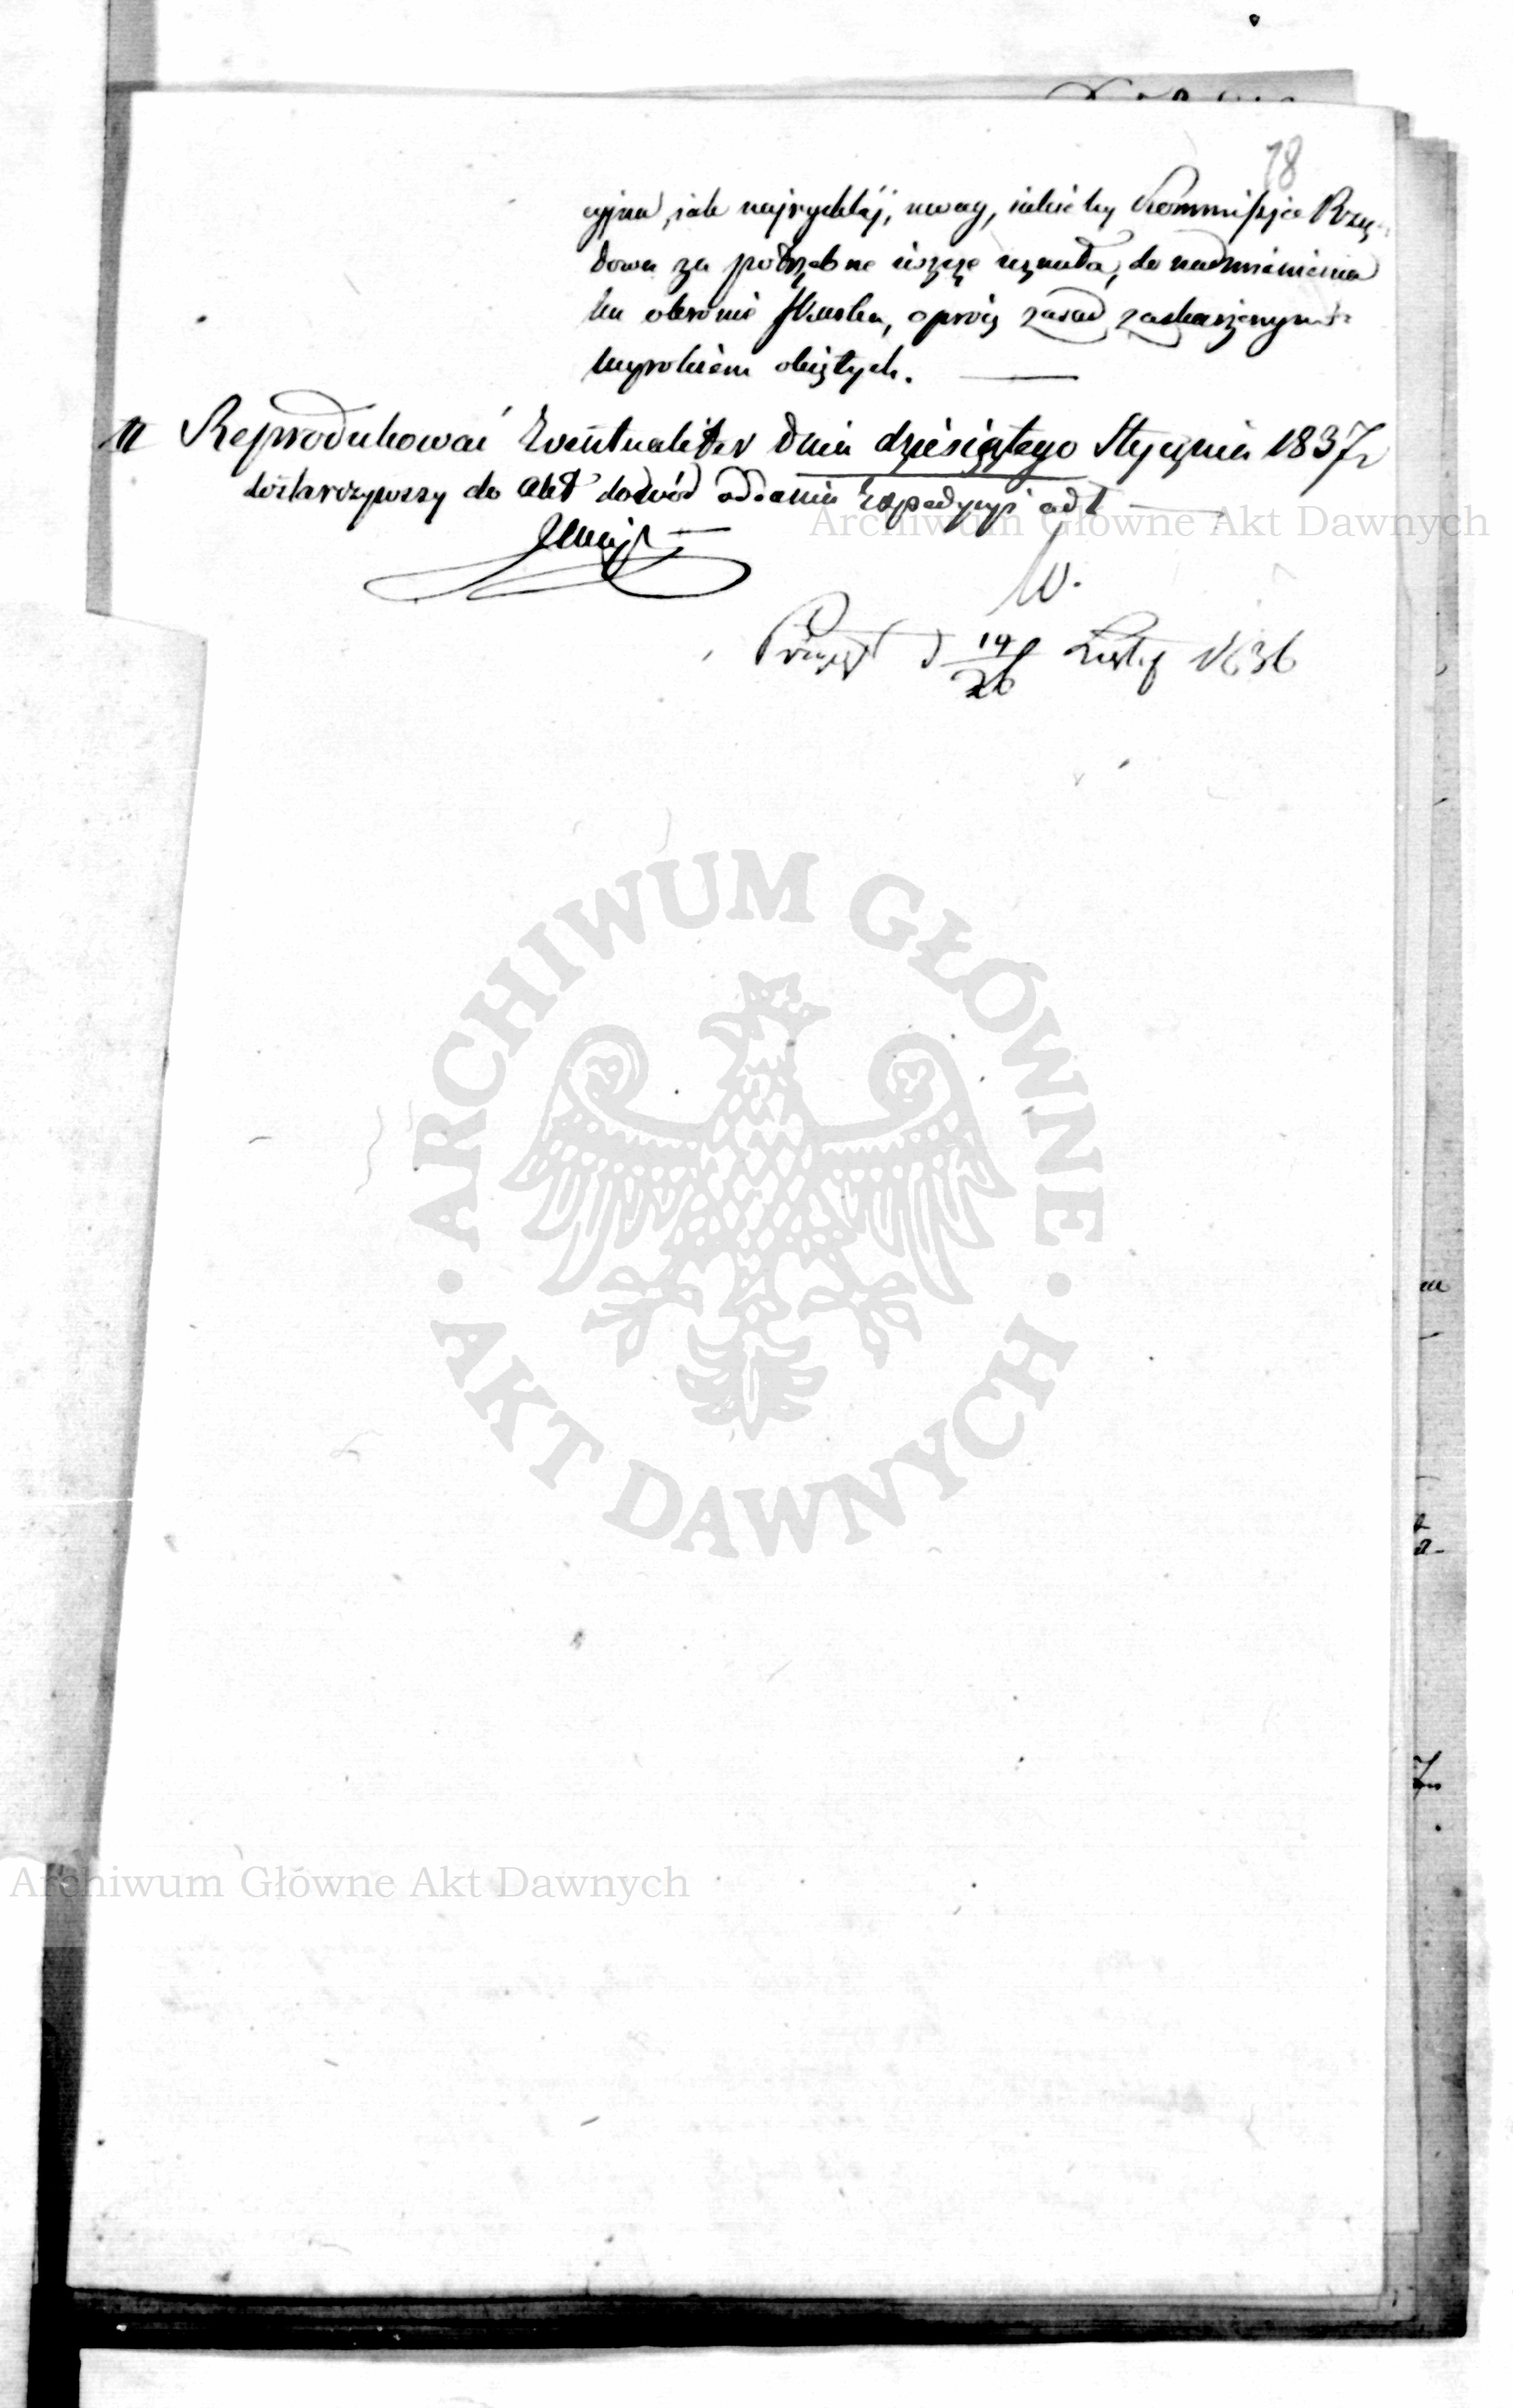 18
cyjna, jak najrychlej, uwag, jakieby Kommissja Rzą-
dowa za potrzebne ieszcze uznała, do nadmienienia
ku obronie Skarbu, oprócz zasad zaskarżonym
wyrokiem obiętych.
II Reprodukować Eventualiter dnia dziesiątego Stycznia 1837 r
dostarczywszy do akt dowód oddania Expedycyi ad 1
W.
d 14/26 Listop 1836
Archiwum Główne Akt Dawnych
ARCHIWUM GŁÓWNE
AKT DAWNYCH
Archiwum Główne Akt Dawnych